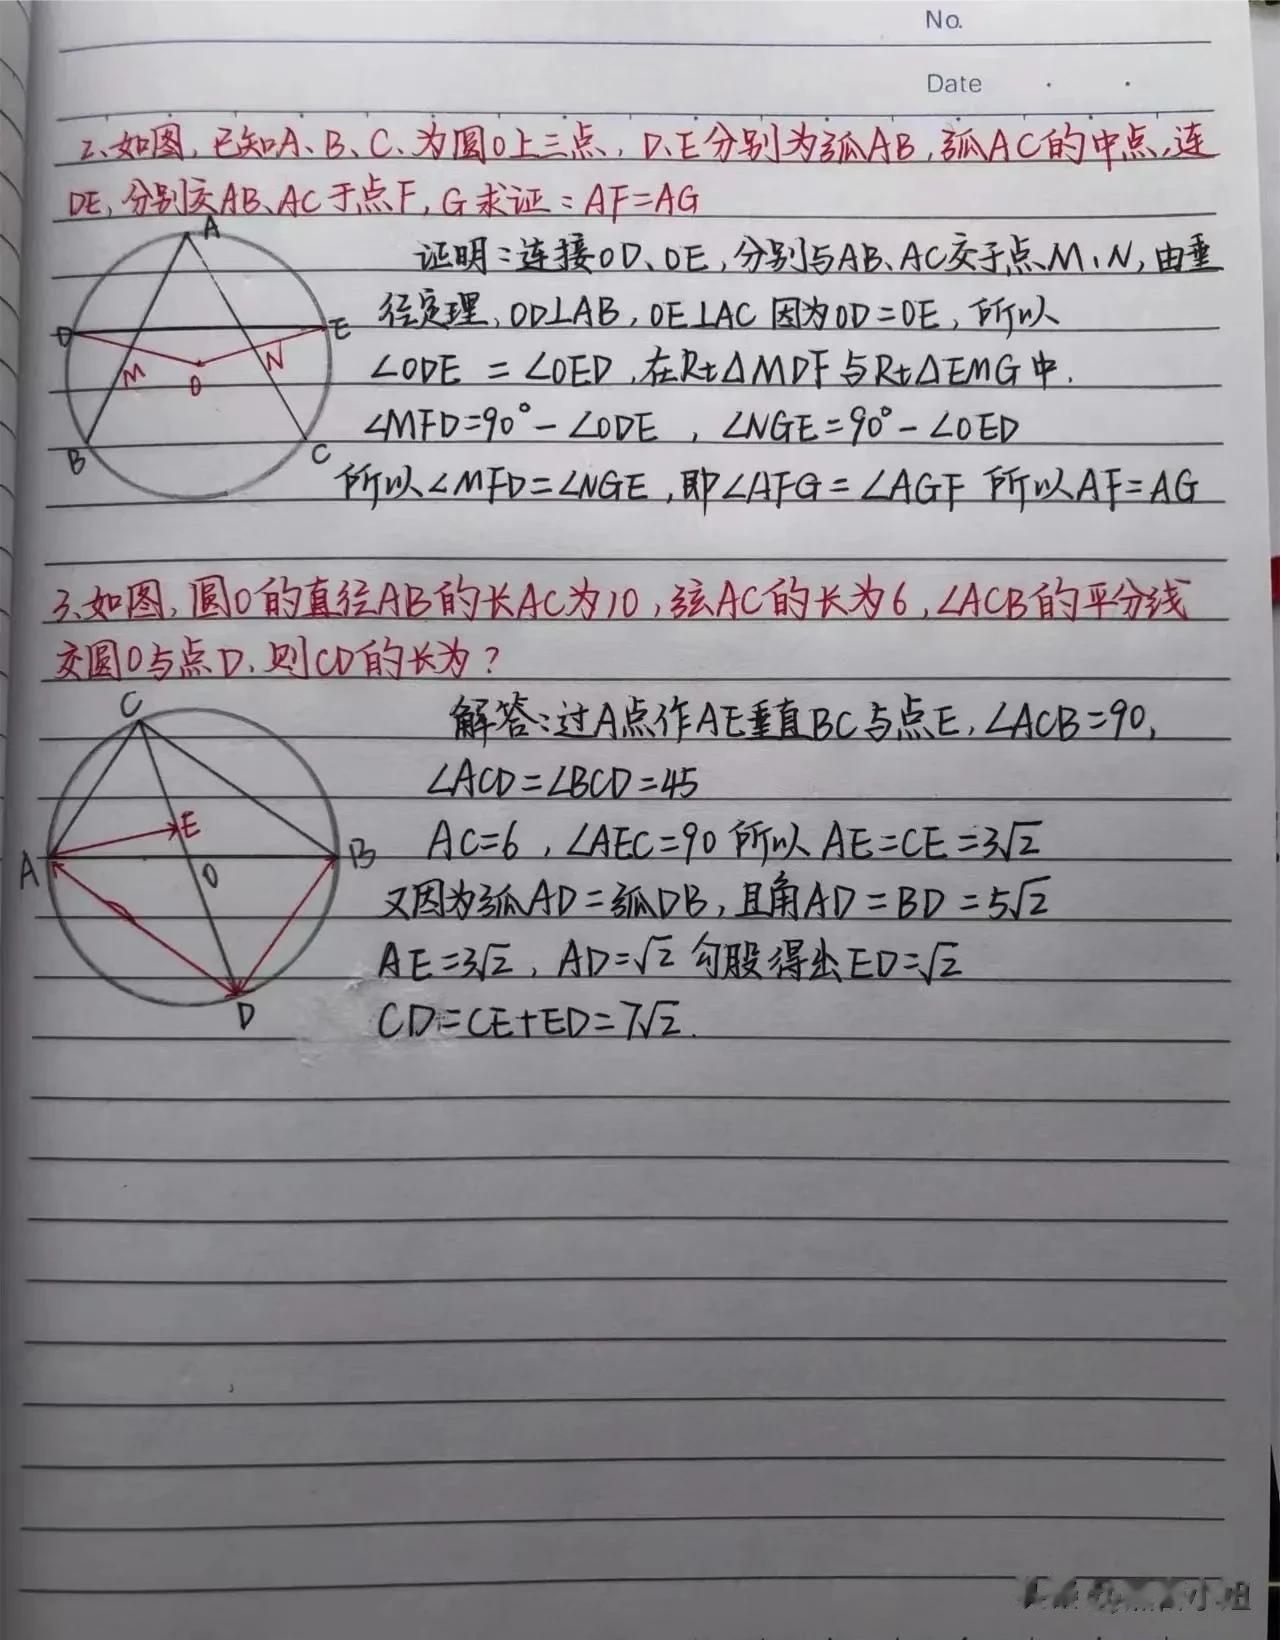 No.
Date
2、如图，已知A、B、C、为圆O上三点，D、E分别为弧AB，弧AC的中点，连
DE，分别交AB、AC于点F，G求证：AF=AG
A
证明：连接OD、OE，分别与AB、AC交于点M、N，由垂
径定理，OD⊥AB，OE⊥AC 因为OD=OE，所以
D
E
M
N
O
∠ODE = ∠OED，在Rt△MDF与Rt△EMG中.
∠MFD=90°-∠ODE ，∠NGE=90°-∠OED
B
C
所以∠MFD=∠NGE，即∠AFG=∠AGF 所以AF=AG
3、如图，圆O的直径AB的长AC为10，弦AC的长为6，∠ACB的平分线
交圆O与点D.则CD的长为？
C
解答：过A点作AE垂直BC与点E，∠ACB=90，
∠ACD=∠BCD=45
E
AC=6，∠AEC=90 所以AE=CE=3√2
A
B
O
又因为弧AD=弧DB，且角AD=BD=5√2
AE=3√2，AD=√2 勾股得出ED=√2
D
CD=CE+ED=7√2.
小姐